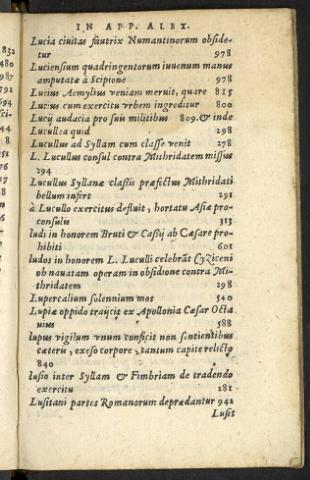 IN APP. ALEX.
Lucia ciuitas fautrix Numantinorum obside-
tur 978
Luciensium quadringentorum iuuenum manus
amputatæ à Scipione 978
Lucius Aemylius veniam meruit, quare 815
Lucius cum exercitu vrbem ingreditur 800
Lucij audacia pro suis militibus 809. & inde
Lucullea quid 298
Lucullus ad Syllam cum classe venit 278
L. Lucullus consul contra Mithridatem missus
294
Lucullus Syllanæ classis præfectus Mithridati
bellum infert 291
à Lucullo exercitus defluit, hortatu Asiæ pro-
consulis 313
ludi in honorem Bruti & Cassij ab Cæsare pro-
hibiti 601
ludos in honorem L. Luculli celebrāt Cyziceni
ob nauatam operam in obsidione contra Mi-
thridatem 298
Lupercalium solennium mos 540
Lupiæ oppido traijcit ex Apollonia Cæsar Octa
uius 588
lupus vigilum vnum conficit non sentientibus
cæteris, exeso corpore, tantum capite relicto
840
lusio inter Syllam & Fimbriam de tradendo
exercitu 281
Lusitani partes Romanorum deprædantur 942
Lusit
832
480
987
792
694
Sci-